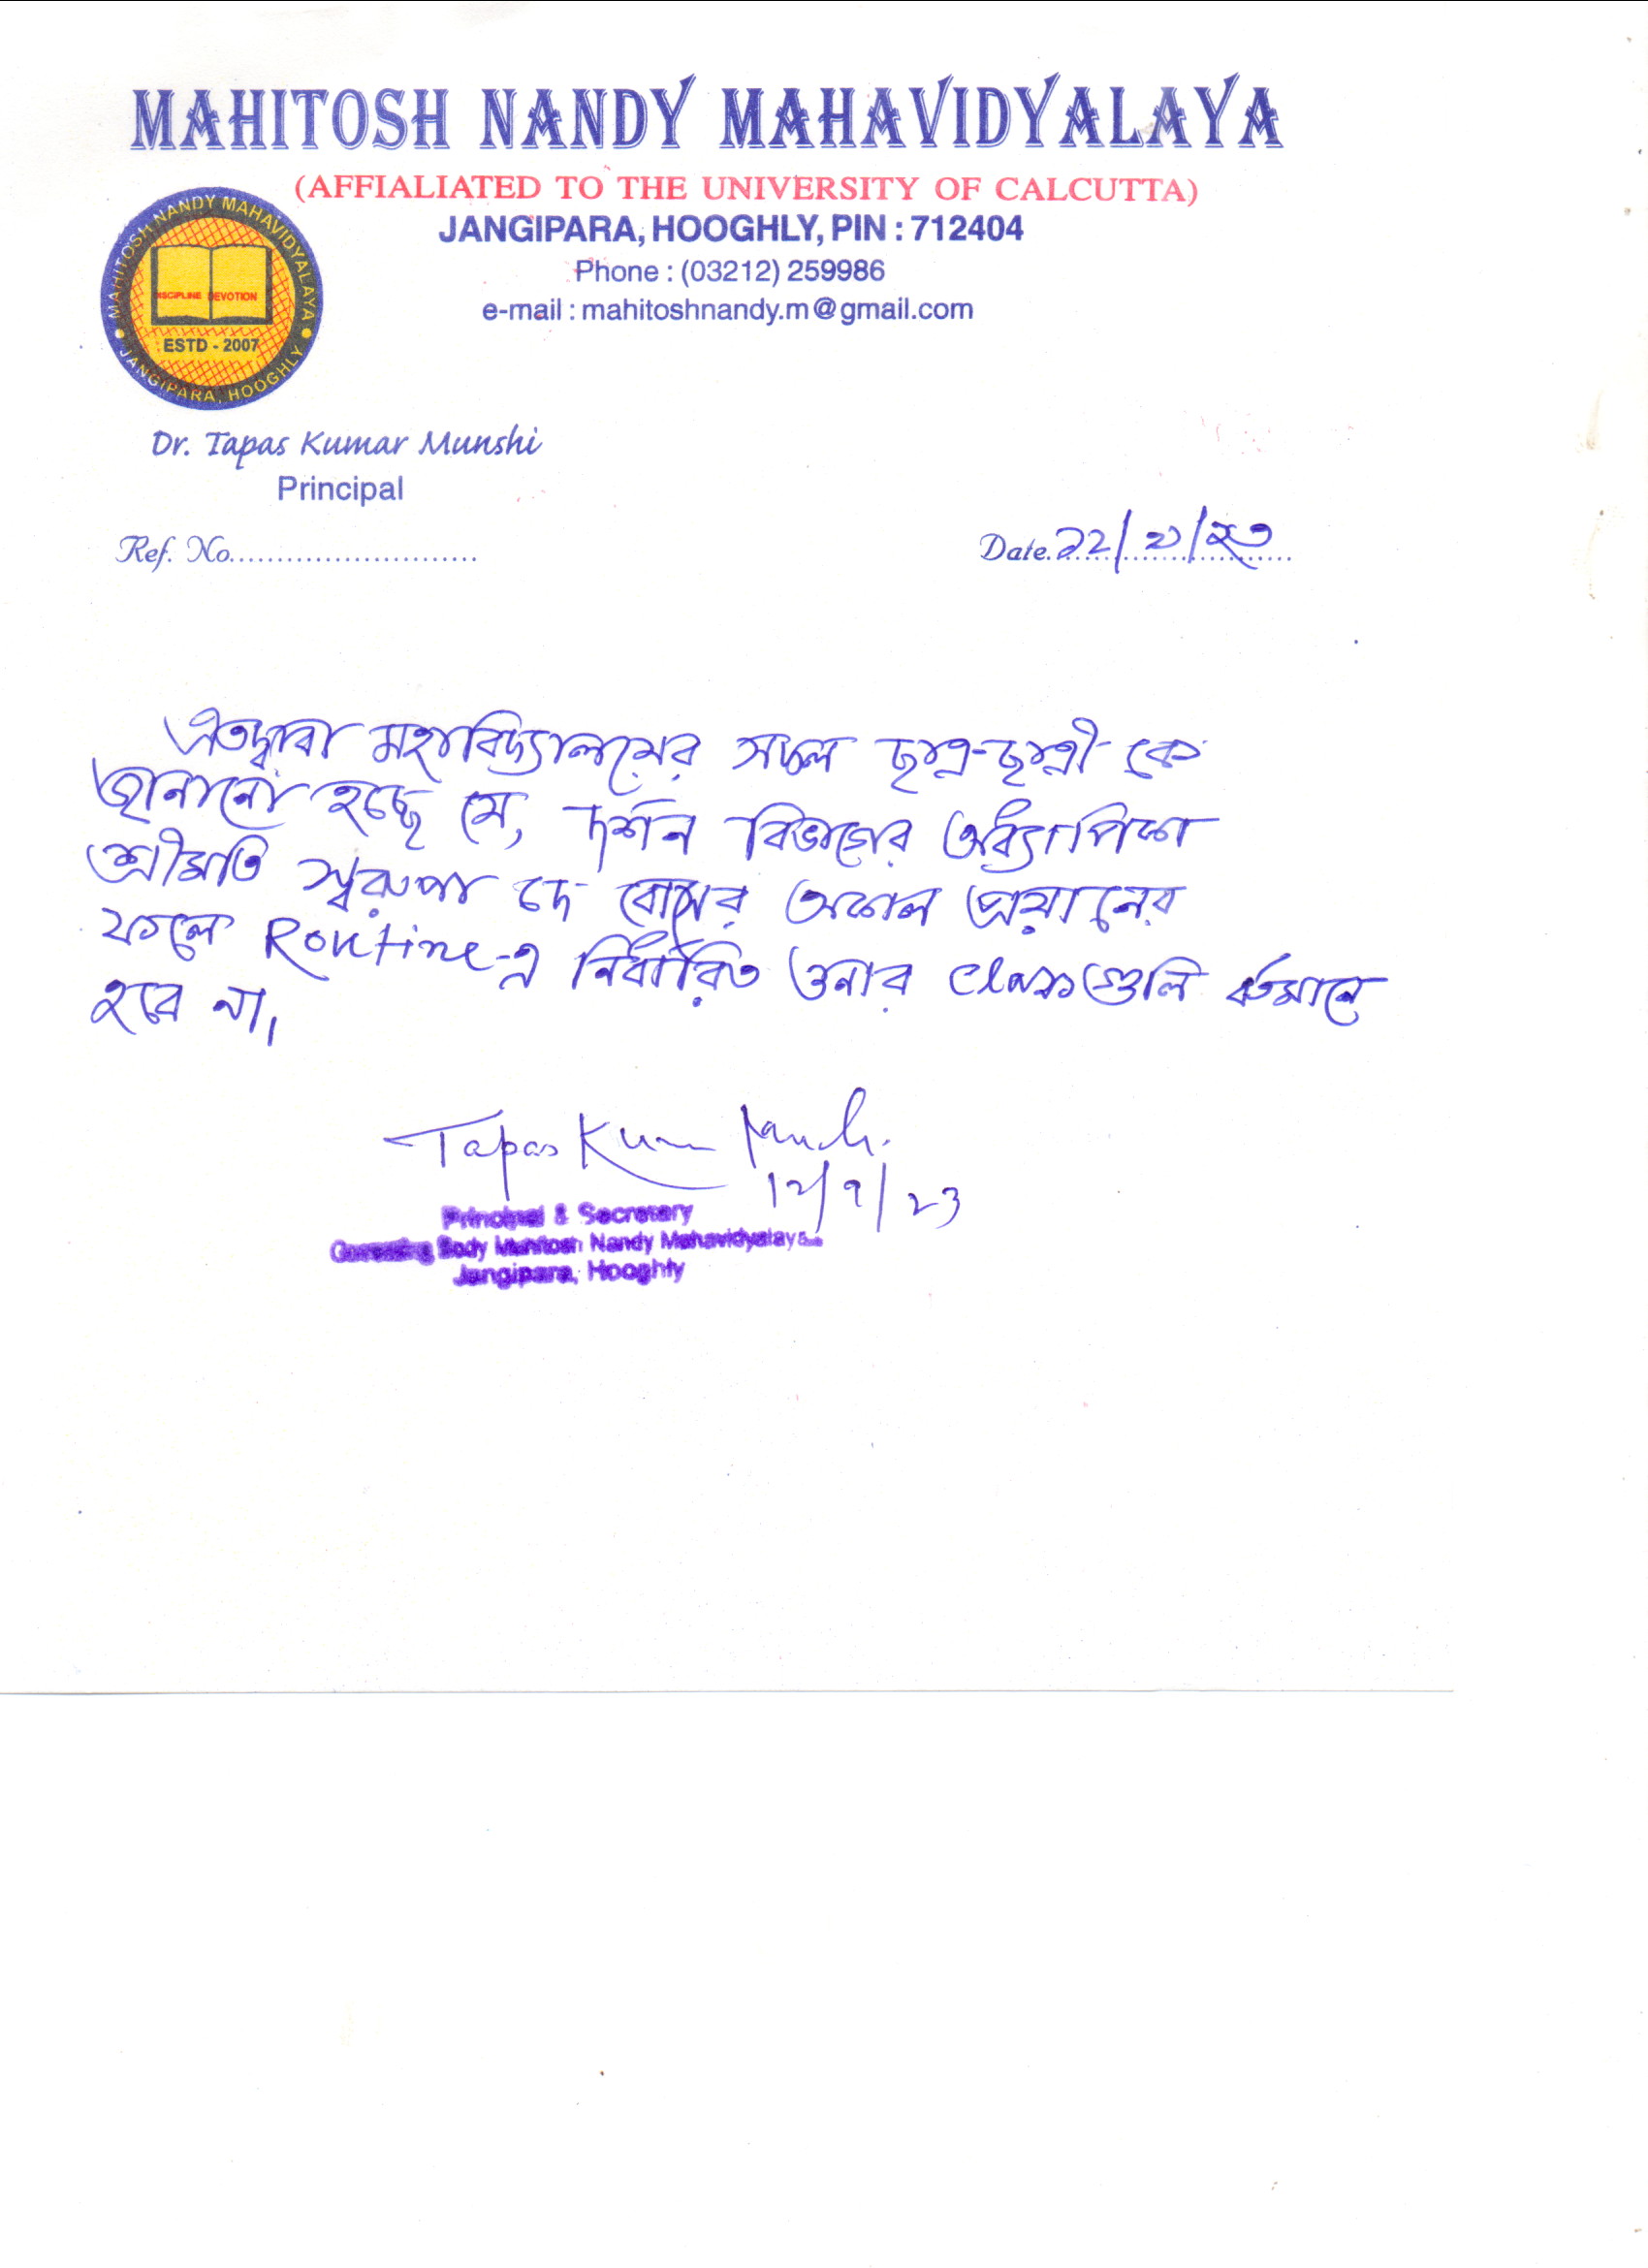 MAHITOSH NANDY MAHAVIDYALAYA
(AFFIALIATED TO THE UNIVERSITY OF CALCUTTA)
JANGIPARA, HOOGHLY, PIN : 712404
Phone : (03212) 259986
e-mail : mahitoshnandy.m@gmail.com
MAHITOSH NANDY MAHAVIDYALAYA
DISCIPLINE DEVOTION
ESTD - 2007
JANGIPARA, HOOGHLY
Dr. Tapas Kumar Munshi
Principal
Ref. No.........................
Date. ১২/৯/২৩
এতদ্বারা মহাবিদ্যালয়ের সকল ছাত্র-ছাত্রী কে
জানানো হচ্ছে যে, দর্শন বিভাগের অধ্যাপিকা
শ্রীমতি স্বরুপা দে বোসের অকাল প্রয়ানের
ফলে Routine-এ নির্ধারিত ওনার classগুলি বর্তমানে
হবে না।
Tapas Kumar Munshi.
12/9/23
Principal & Secretary
Governing Body Mahitosh Nandy Mahavidyalaya
Jangipara, Hooghly